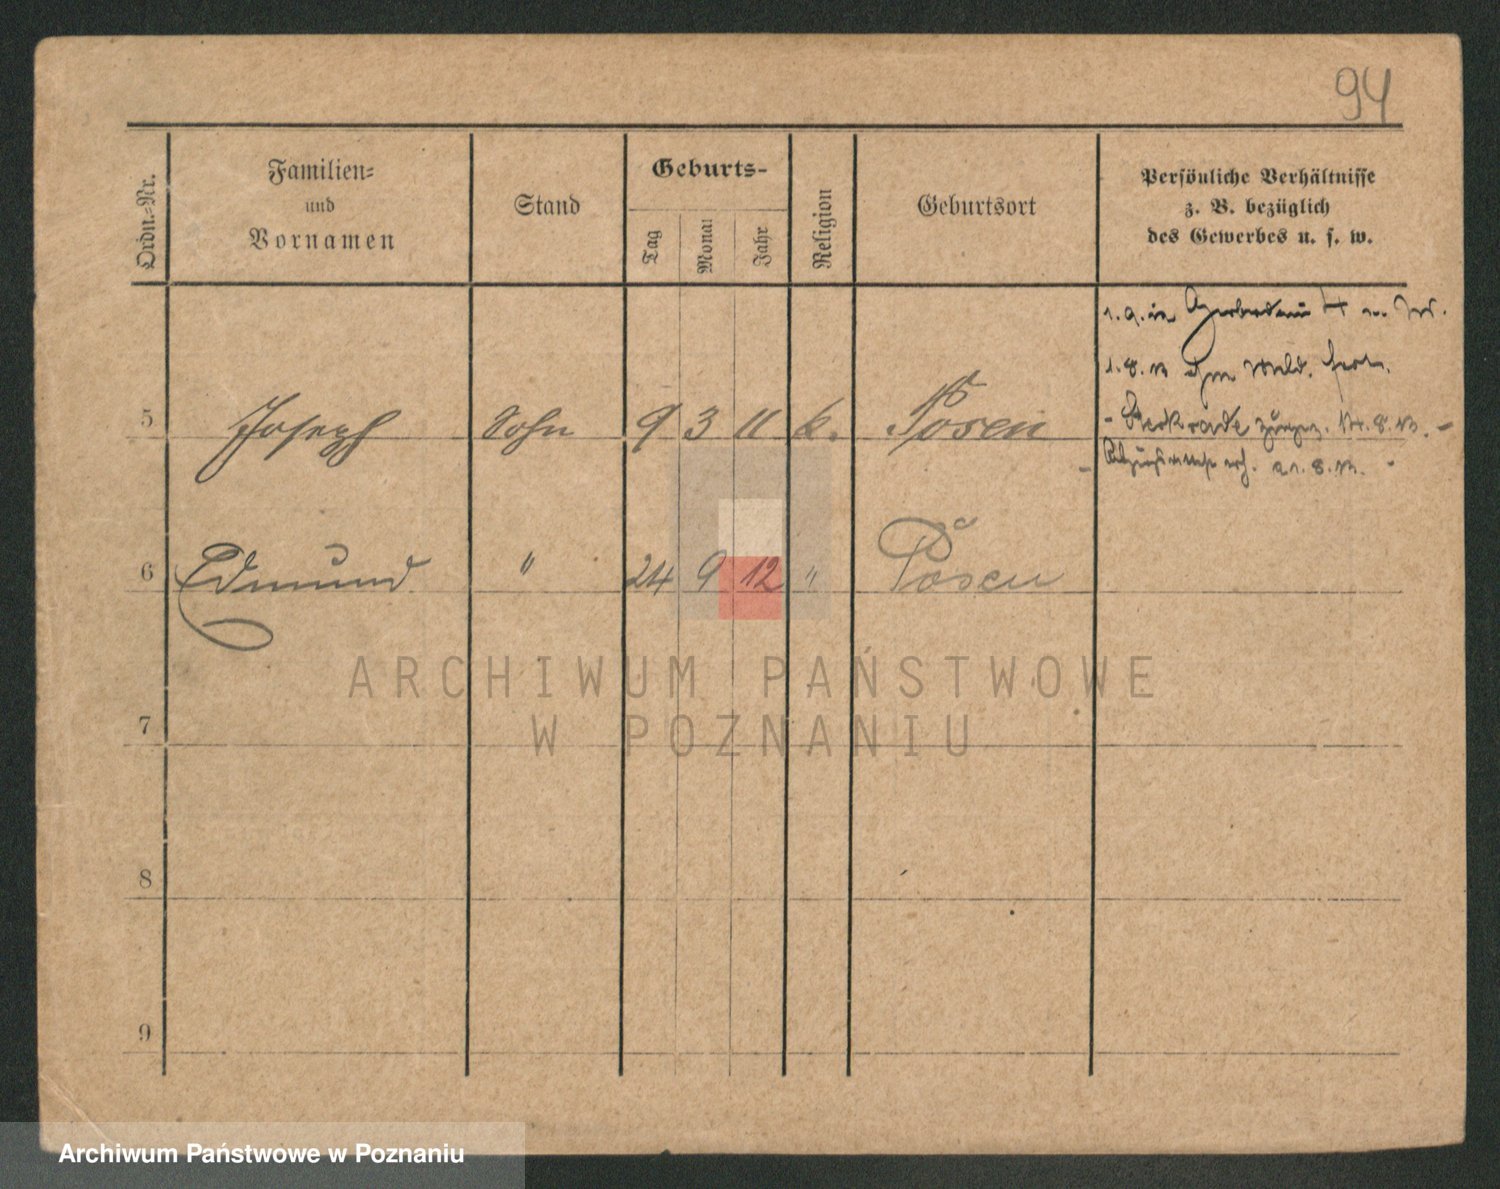 94
Ordn.-Nr.
Familien-
und
Vornamen
Stand
Geburts-
Tag
Monat
Jahr
Religion
Geburtsort
Persönliche Verhältnisse
z. B. bezüglich
des Gewerbes u. s. w.
1. 9. in
1. 8. 13
5 Joseph Sohn 9 3 11 k. Posen
Sterkrade 8. 13.
21. 8. 13.
6 Edmund " 24 9 12 " Posen
ARCHIWUM PAŃSTWOWE
W POZNANIU
7
8
9
Archiwum Państwowe w Poznaniu